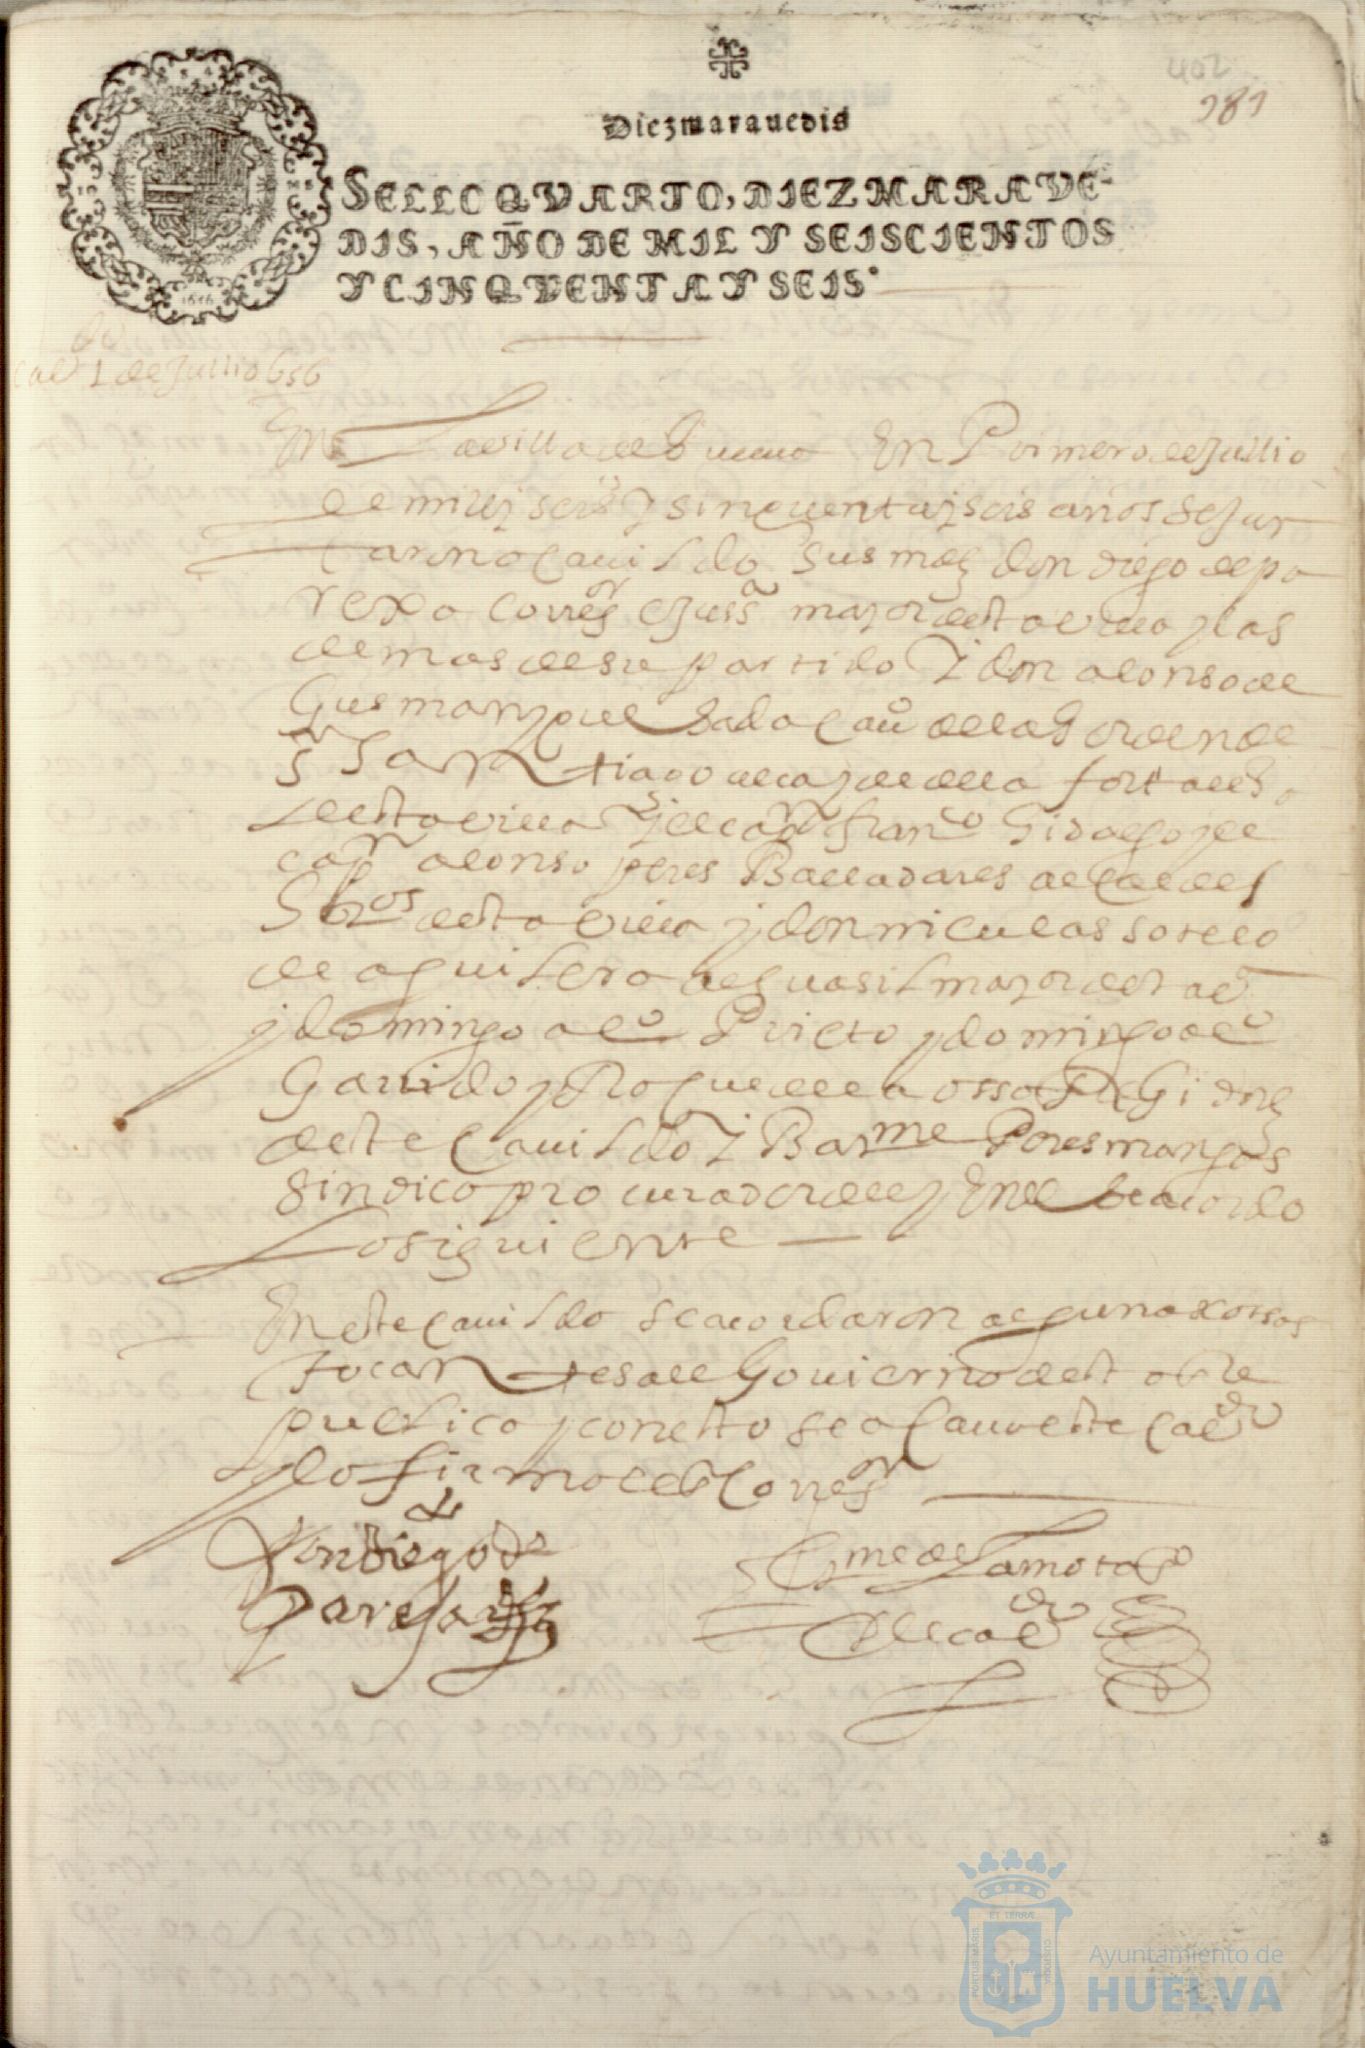 402
181
Diez marauedis
SELLO QVARTO, DIEZ MARAVE-
DIS, AÑO DE MIL Y SEISCIENTOS
Y CINQVENTA Y SEIS.
1656
Cao 1 de Jullio 656
En La Villa de Guelua En Primero de Jullio
de mill y seisº y sinquenta y seis años se jun
taron a Cauildo Sus mds don diego de pa
rexa corregor e Jussa mayor desta villa y las
demas de su partido y don alonso de
Gusman quesada Cauº de la orden de
Sr San tiago alcayde de la fortalesa
desta villa y el capn franco hidalgo y el
capn alonso peres Balladares alcaldes
hros desta villa y don niculas sotelo
de aguilera alguasil mayor desta vª
y domingo alº Prieto y domingo alº
Garrido y Roque de la ossa Regidres
deste Cauildo y Barme Peres mangas
sindico procurador del y En el Se acordo
Lo siguiente
En este Cauildo se acordaron algunas cossas
tocantes al Gouierno desta Re
publica y con esto se acauo este Cauº
y lo firmo el Corregor
Don Diego de
Pareja
me de Lamota
del caudo
PORTUS MARIS
ET TERRAE
CUSTODIA
Ayuntamiento de
HUELVA